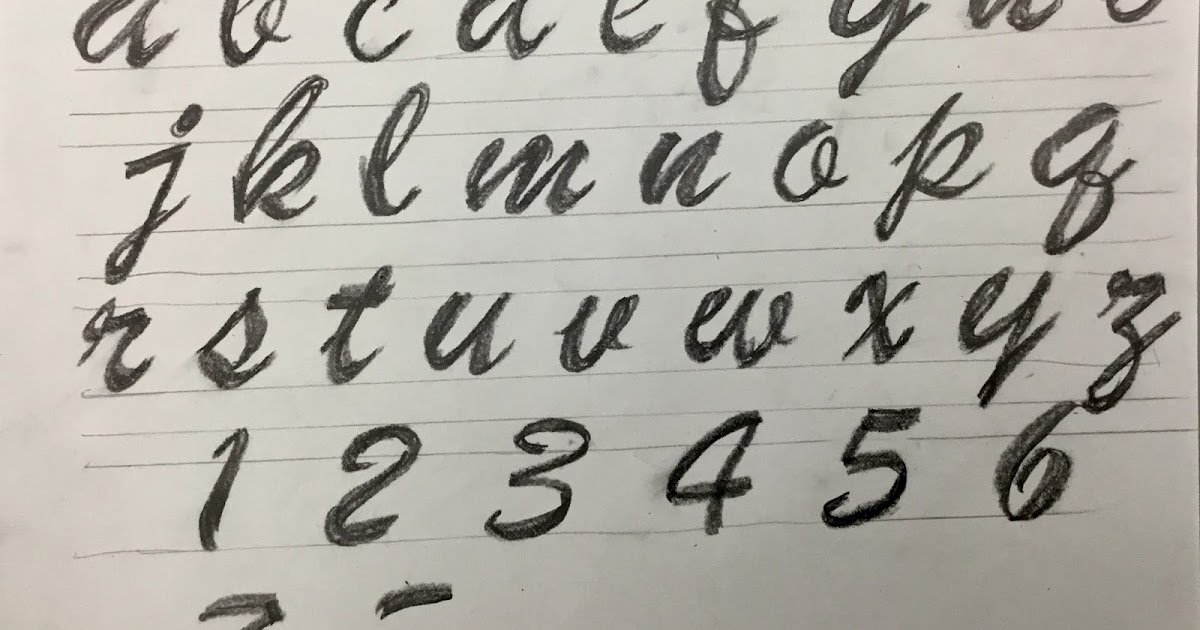 a b c d e f g h i
j k l m n o p q
r s t u v w x y z
1 2 3 4 5 6